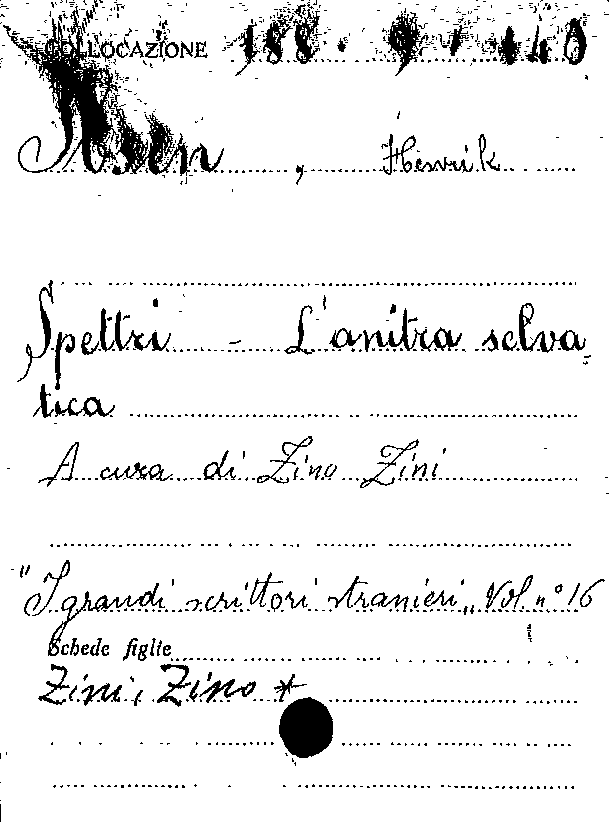 COLLOCAZIONE 188. 9. 140
Ibsen, Henrik
Spettri - L'anitra selva-
tica
A cura di Zino Zini
"I grandi scrittori stranieri„ Vol. n° 16
Schede figlie
Zini, Zino *